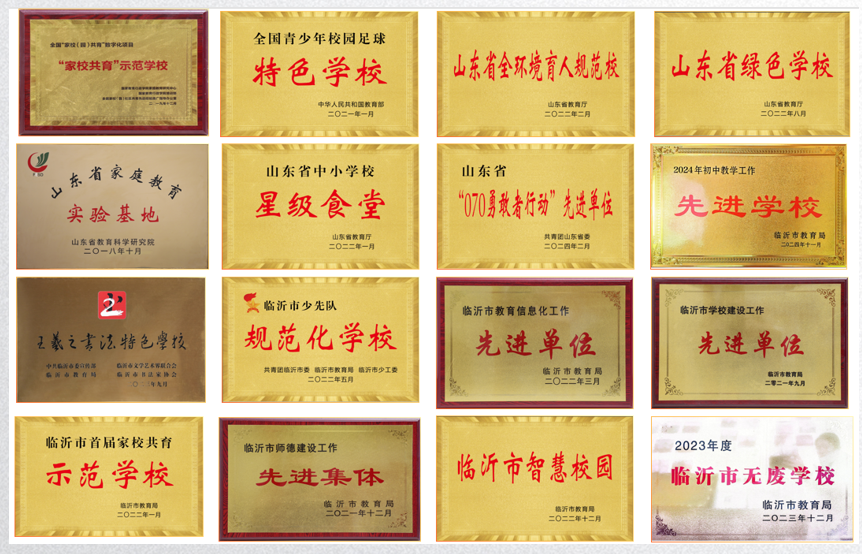 全国“家校(园)共育”数字化项目
“家校共育”示范学校
二〇一九年十二月
全国青少年校园足球
特色学校
中华人民共和国教育部
二〇二一年一月
山东省全环境育人规范校
山东省教育厅
二〇二二年二月
山东省绿色学校
山东省教育厅
二〇二二年八月
山东省家庭教育
实验基地
山东省教育科学研究院
二〇一八年十月
山东省中小学校
星级食堂
山东省教育厅
二〇二二年一月
山东省
“070勇敢者行动”先进单位
共青团山东省委
二〇二四年二月
2024年初中教学工作
先进学校
临沂市教育局
二〇二四年十一月
王羲之书法特色学校
中共临沂市委宣传部 临沂市文学艺术界联合会
临沂市教育局 临沂市书法家协会
临沂市少先队
规范化学校
共青团临沂市委 临沂市教育局 临沂市少工委
二〇二二年五月
临沂市教育信息化工作
先进单位
临沂市教育局
二〇二二年三月
临沂市学校建设工作
先进单位
临沂市教育局
二零二一年九月
临沂市首届家校共育
示范学校
临沂市教育局
二〇二二年一月
临沂市师德建设工作
先进集体
临沂市教育局
二〇二一年十二月
临沂市智慧校园
临沂市教育局
二〇二二年十二月
2023年度
临沂市无废学校
临沂市教育局
二〇二三年十二月